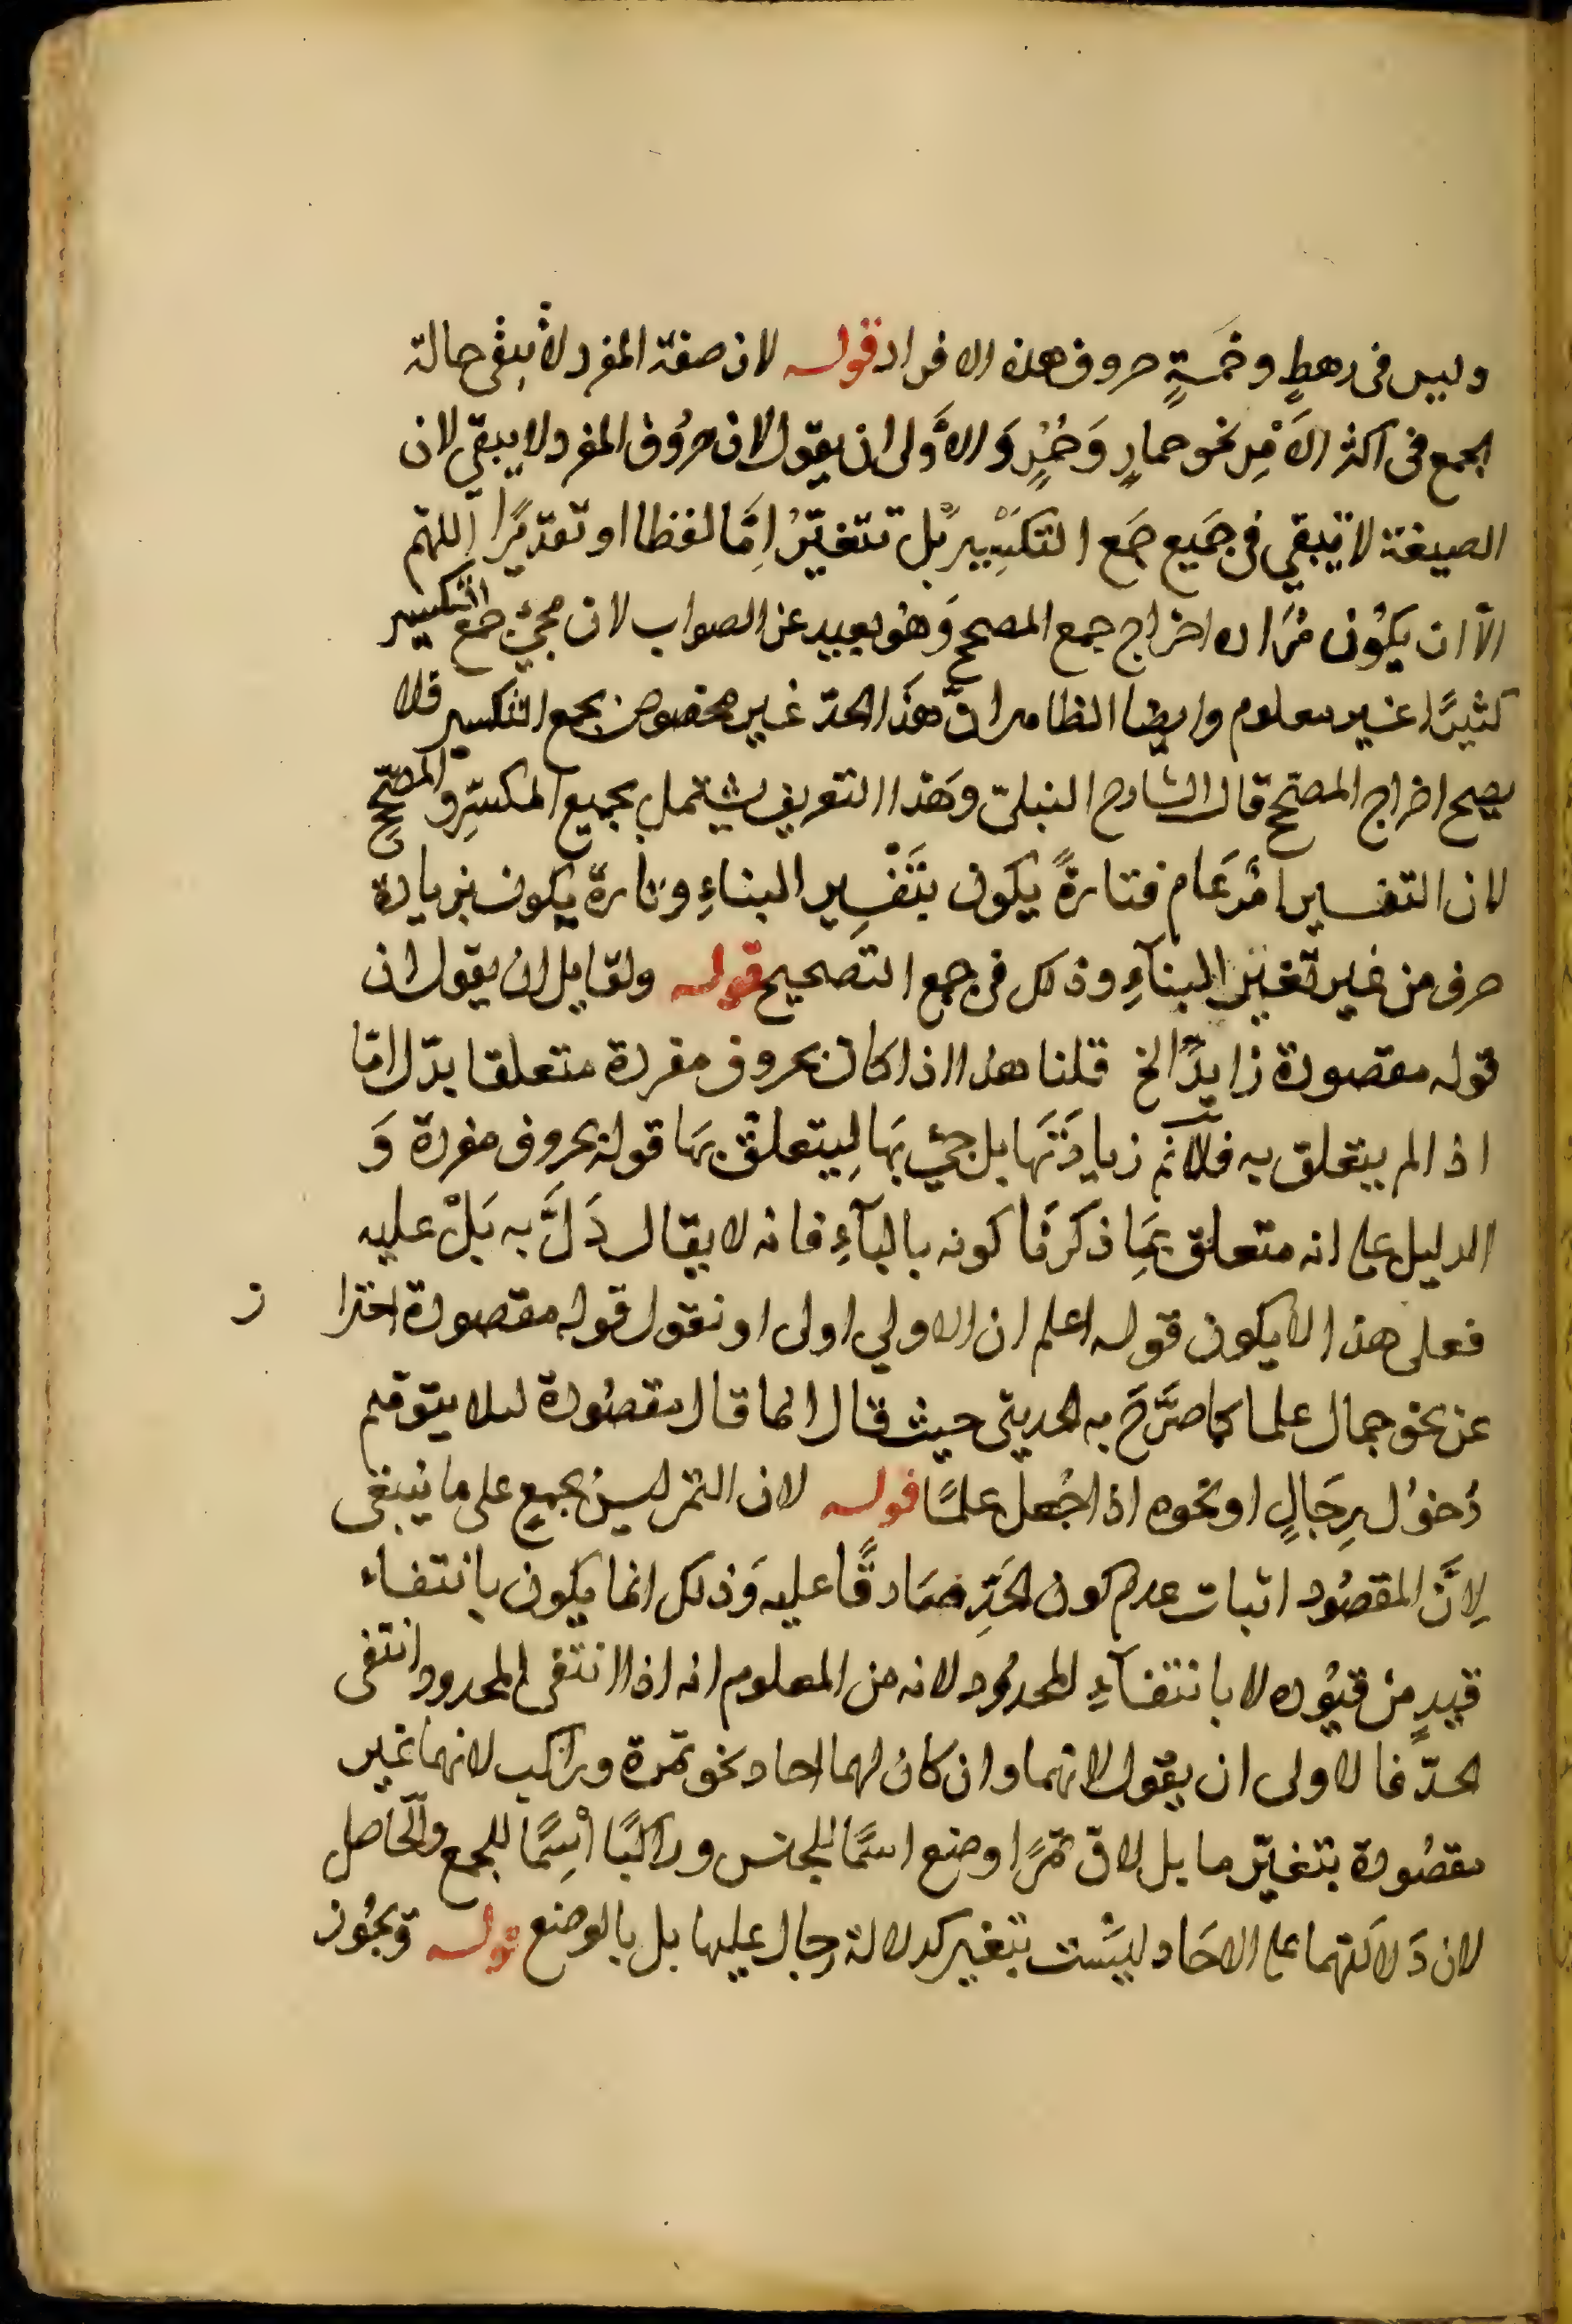 وليس فى رهطٍ وخمسةٍ حروف هذه الافراد قوله لان صفة المفرد لا تبقى حالة
الجمع فى اكثر الاَمْرِ نحو حمارٍ وَحُمُرٍ وَالاَوْلى ان يقول لان حروُف المفرد لا يبقى لان
الصيغة لا تبقي فى جَميع جَمع التكسِير بَل تتغيّرُ اِمَّا لفظا او تقديرًا اللهمّ
الاّ ان يكوُن مُرَاده اخراج جمع المصحح وَهُو بعيد عن الصواب لان مجيئ جمع التكسير
كثيرًا غير معلوم وايضا الظاهر انّ هَذا الحدّ غير مخصوص بجمع التكسير فلا
يصح اخراج المصحّح قال الشارح النبلىّ وَهَذا التعريف يشتمل بجميع المكسّرِ والمصحّحِ
لان التفسير امْر عَام فتارةً يكون بتَفْسِير البناءِ وتارة يكون بزيادة
حرف من غير تغيّر البنآءِ وذلك فى جمع التصحيح قوله ولقايل ان يقول ان
قوله مقصودة زايدًا الخ قلنا هذا اذا كان بحروف مفردة متعلقا بدّل امّا
اذا لم يتعلق به فلا نم زيادَتهَا بل جيئ بهَا لِيتعلّق بهَا قوله بحروف مفردة وَ
الدليل على انه متعلق بمَا ذكرنَا كونه بالبآءِ فانه لا يقال دَلَّ به بَلْ عليه
فعلى هذا لا يكون قوله اعلم ان الاولي اولى او نقول قوله مقصودة احترا ز
عن نحو جمال علما كما صَرَّحَ به الحديثى حيث قال انما قال مقصُودة لىلا يتوهم
دُخوُل برِجَالٍ او نحوه اذا جُعل علمًا قوله لان التمر ليسَ بجمعٍ على ما ينبغى
لِانَّ المقصُود اثبات عدم كون الحَدِّ صَادقًا عليه وَذلك انما يكون بانتفاء
قيدٍ مِن قيوُده لا بانتفآءِ المحدوُد لانه من المعلوم انه اذا انتفى المحدود انتفى
الحدّ فالاولى ان يقول لانهما وان كان لهما احاد نحو تمرة وراكب لانهما غير
مقصُودة بتغيّر ما بل لانّ تمرًا وضع اسمًا للجنس وراكبًا اسِمًا للجمع والحَاصل
لان دَلالَتهما على الاحَاد ليسَت بتغير كدلالة رجال عليها بل بالوضع قوله ويجوُز